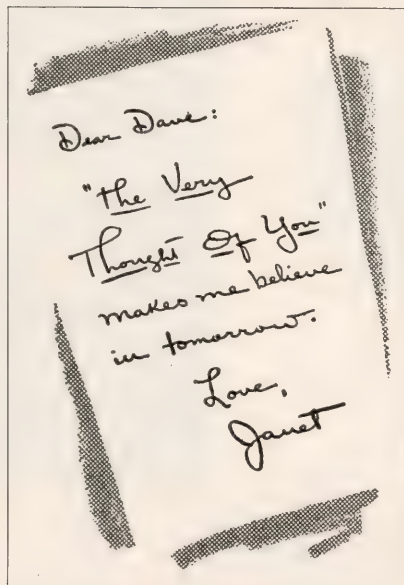 Dear Dave:
"The Very
Thought Of You"
makes me believe
in tomorrow.
Love,
Janet